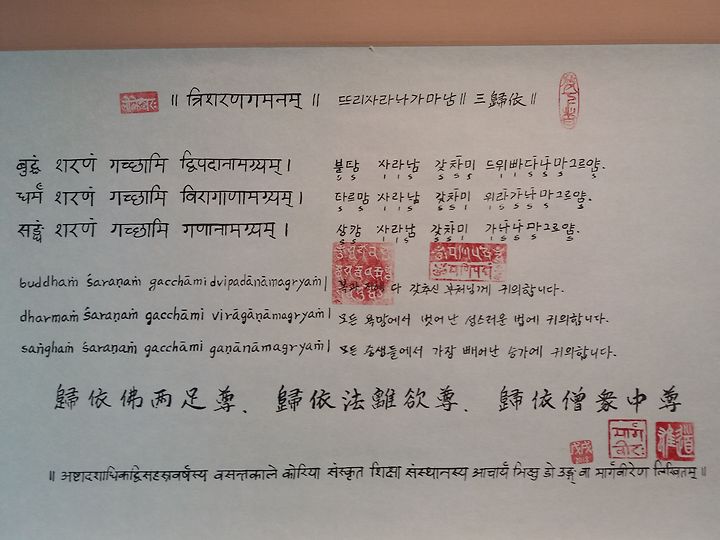 ॥ त्रिशरणगमनम् ॥ 뜨리샤라나가마남 ॥ 三歸依 ॥
बुद्धं शरणं गच्छामि द्विपदानामग्र्यम् । 붇담 샤라남 갗차미 드위빠다나마그르얌.
धर्मं शरणं गच्छामि विरागाणामग्र्यम् । 다르맘 샤라남 갗차미 위라가나마그르얌.
सङ्घं शरणं गच्छामि गणानामग्र्यम् । 상감 샤라남 갗차미 가나나마그르얌.
buddhaṁ śaraṇaṁ gacchāmi dvipadānāmagryaṁ | 다 갖추신 부처님께 귀의합니다.
dharmaṁ śaraṇaṁ gacchāmi virāgāṇāmagryaṁ | 모든 욕망에서 벗어난 성스러운 법에 귀의합니다.
saṅghaṁ śaraṇaṁ gacchāmi gaṇānāmagryaṁ | 모든 승생들에서 가장 빼어난 승가에 귀의합니다.
歸依佛两足尊、歸依法離欲尊、歸依僧衆中尊
मार्ग वीरः
戊戌 2018
॥ अष्टादशाधिकद्विसहस्रवर्षस्य वसन्तकाले कोरिया संस्कृत शिक्षा संस्थानस्य आचार्य भिक्षु डो उङ्ग् वा मार्गवीरेण लिखितम् ॥